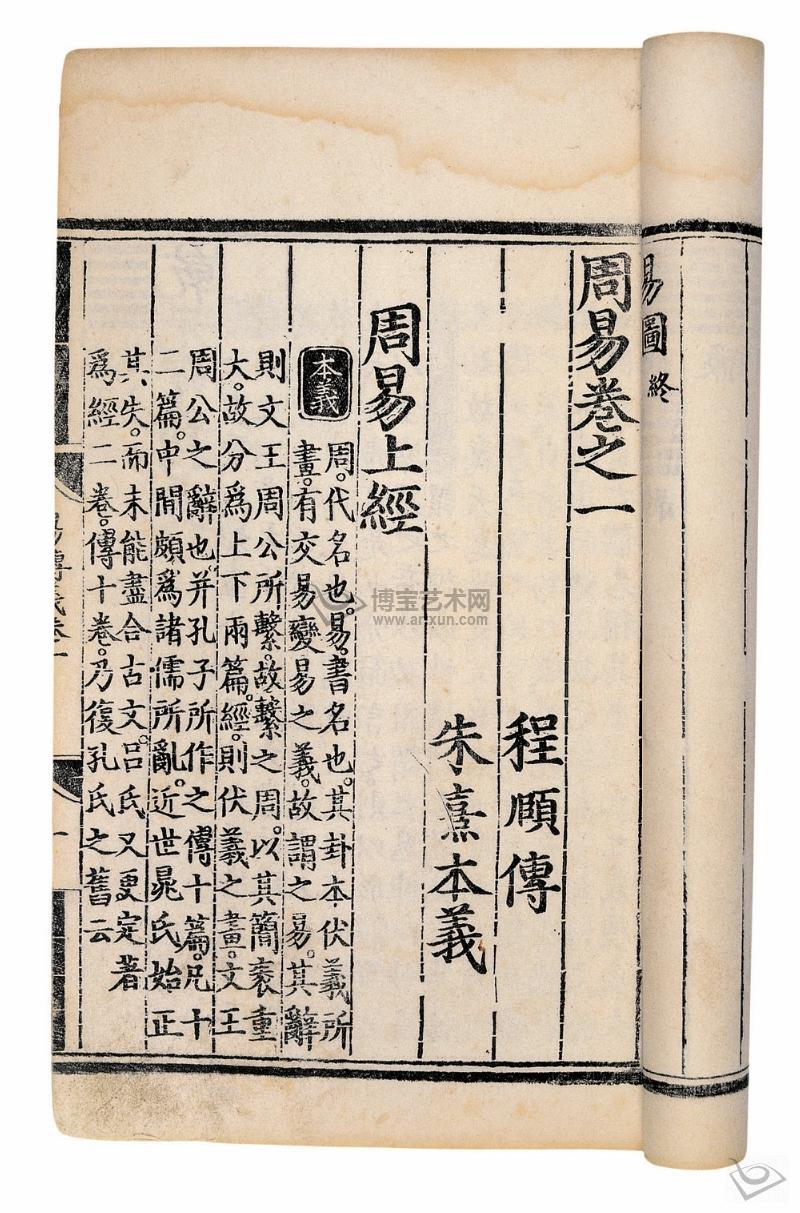 易圖終
周易卷之一
程頤傳
朱熹本義
周易上經
本義
周。代名也。易。書名也。其卦本伏羲所
畫。有交易變易之義。故謂之易。其辭
則文王周公所繫。故繫之周。以其簡袠重
大。故分爲上下兩篇。經則伏羲之畫。文王
周公之辭也。并孔子所作之傳十篇。凡十
二篇。中間頗爲諸儒所亂。近世晁氏始正
其失。而未能盡合古文。呂氏又更定著
爲經二卷。傳十卷。乃復孔氏之舊云
易傳義卷一
一
博宝艺术网
www.artxun.com